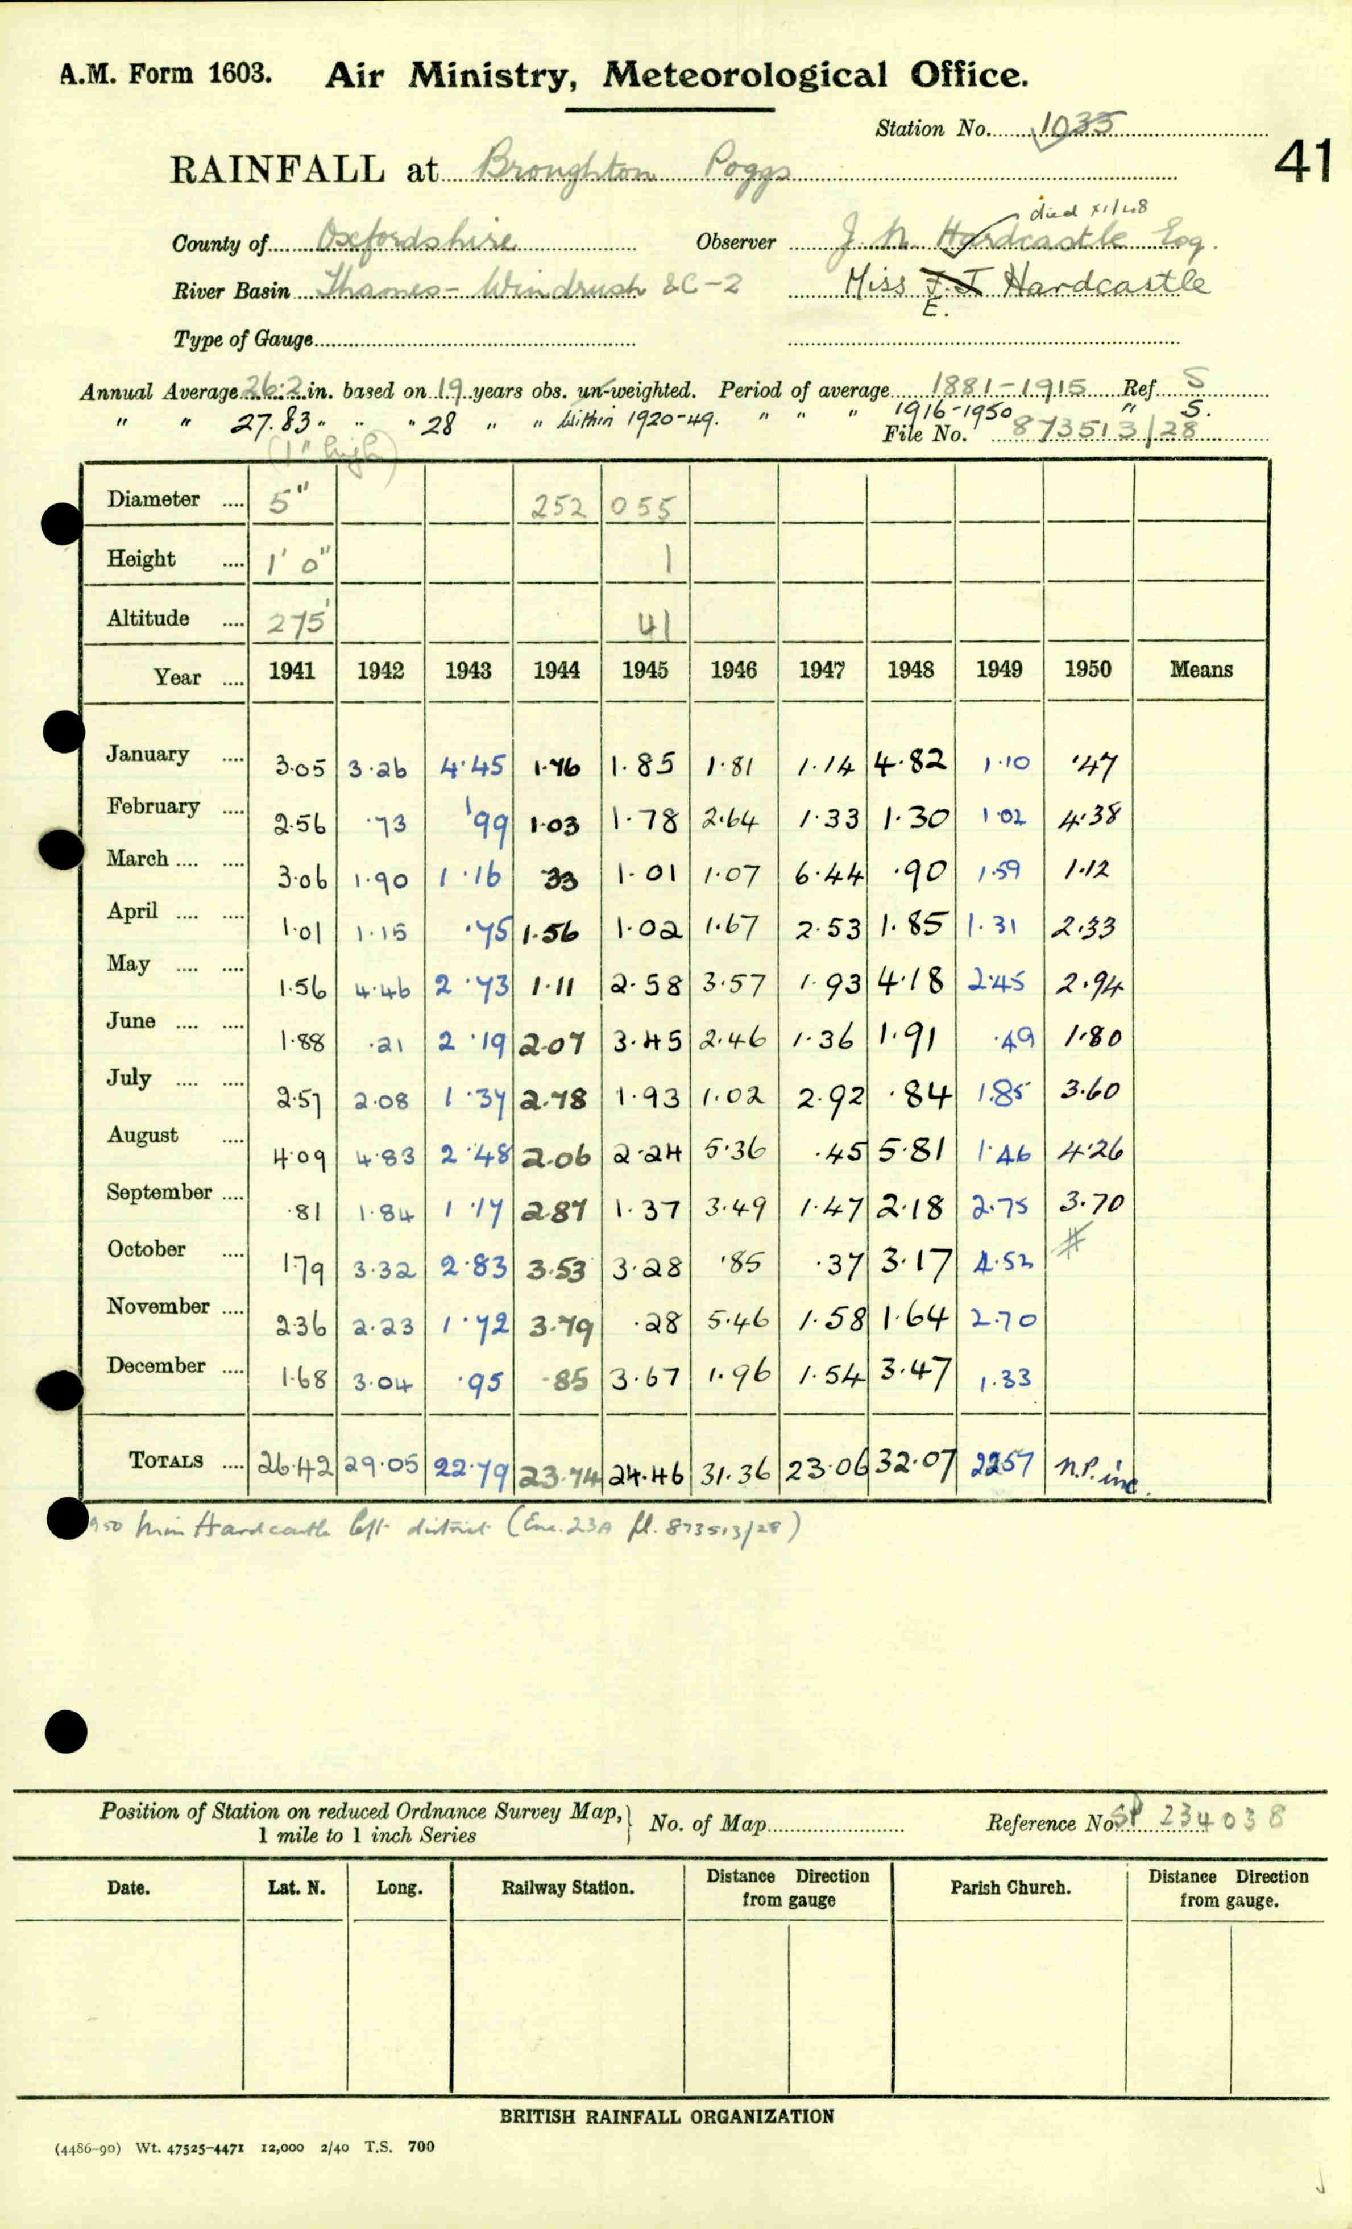 A.M. Form 1603. Air Ministry, Meteorological Office.
Station No. 1035
41
RAINFALL at Broughton Poggs
died XI/48
County of Oxfordshire Observer J. N. Hardcastle Esq.
River Basin Thames - Windrush &C-2 Miss F. J Hardcastle
E.
Type of Gauge
Annual Average 26.2 in. based on 19 years obs. un-weighted. Period of average 1881-1915 Ref S
" " 27.83 " " " 28 " " Within 1920-49. " " " 1916-1950 " S.
(1" high) File No. 873513/28
Diameter 5" 252 055
Height 1' 0" 1
Altitude 275' 41
Year 1941 1942 1943 1944 1945 1946 1947 1948 1949 1950 Means
January 3.05 3.26 4.45 1.76 1.85 1.81 1.14 4.82 1.10 .47
February 2.56 .73 .99 1.03 1.78 2.64 1.33 1.30 1.02 4.38
March 3.06 1.90 1.16 33 1.01 1.07 6.44 .90 1.59 1.12
April 1.01 1.15 .75 1.56 1.02 1.67 2.53 1.85 1.31 2.33
May 1.56 4.46 2.73 1.11 2.58 3.57 1.93 4.18 2.45 2.94
June 1.88 .21 2.19 2.07 3.45 2.46 1.36 1.91 .49 1.80
July 2.57 2.08 1.37 2.78 1.93 1.02 2.92 .84 1.85 3.60
August 4.09 4.83 2.48 2.06 2.24 5.36 .45 5.81 1.46 4.26
September .81 1.84 1.17 2.87 1.37 3.49 1.47 2.18 2.75 3.70
October 1.79 3.32 2.83 3.53 3.28 .85 .37 3.17 4.52 #
November 2.36 2.23 1.72 3.79 .28 5.46 1.58 1.64 2.70
December 1.68 3.04 .95 .85 3.67 1.96 1.54 3.47 1.33
TOTALS 26.42 29.05 22.79 23.74 24.46 31.36 23.06 32.07 22.57 N.P. inc.
950 Miss Hardcastle left district (Enc. 23A fl. 873513/28)
Position of Station on reduced Ordnance Survey Map, 1 mile to 1 inch Series } No. of Map Reference No. SP 234038
Date. Lat. N. Long. Railway Station. Distance Direction from gauge Parish Church. Distance Direction from gauge.
BRITISH RAINFALL ORGANIZATION
(4486-90) Wt. 47525-4471 12,000 2/40 T.S. 700